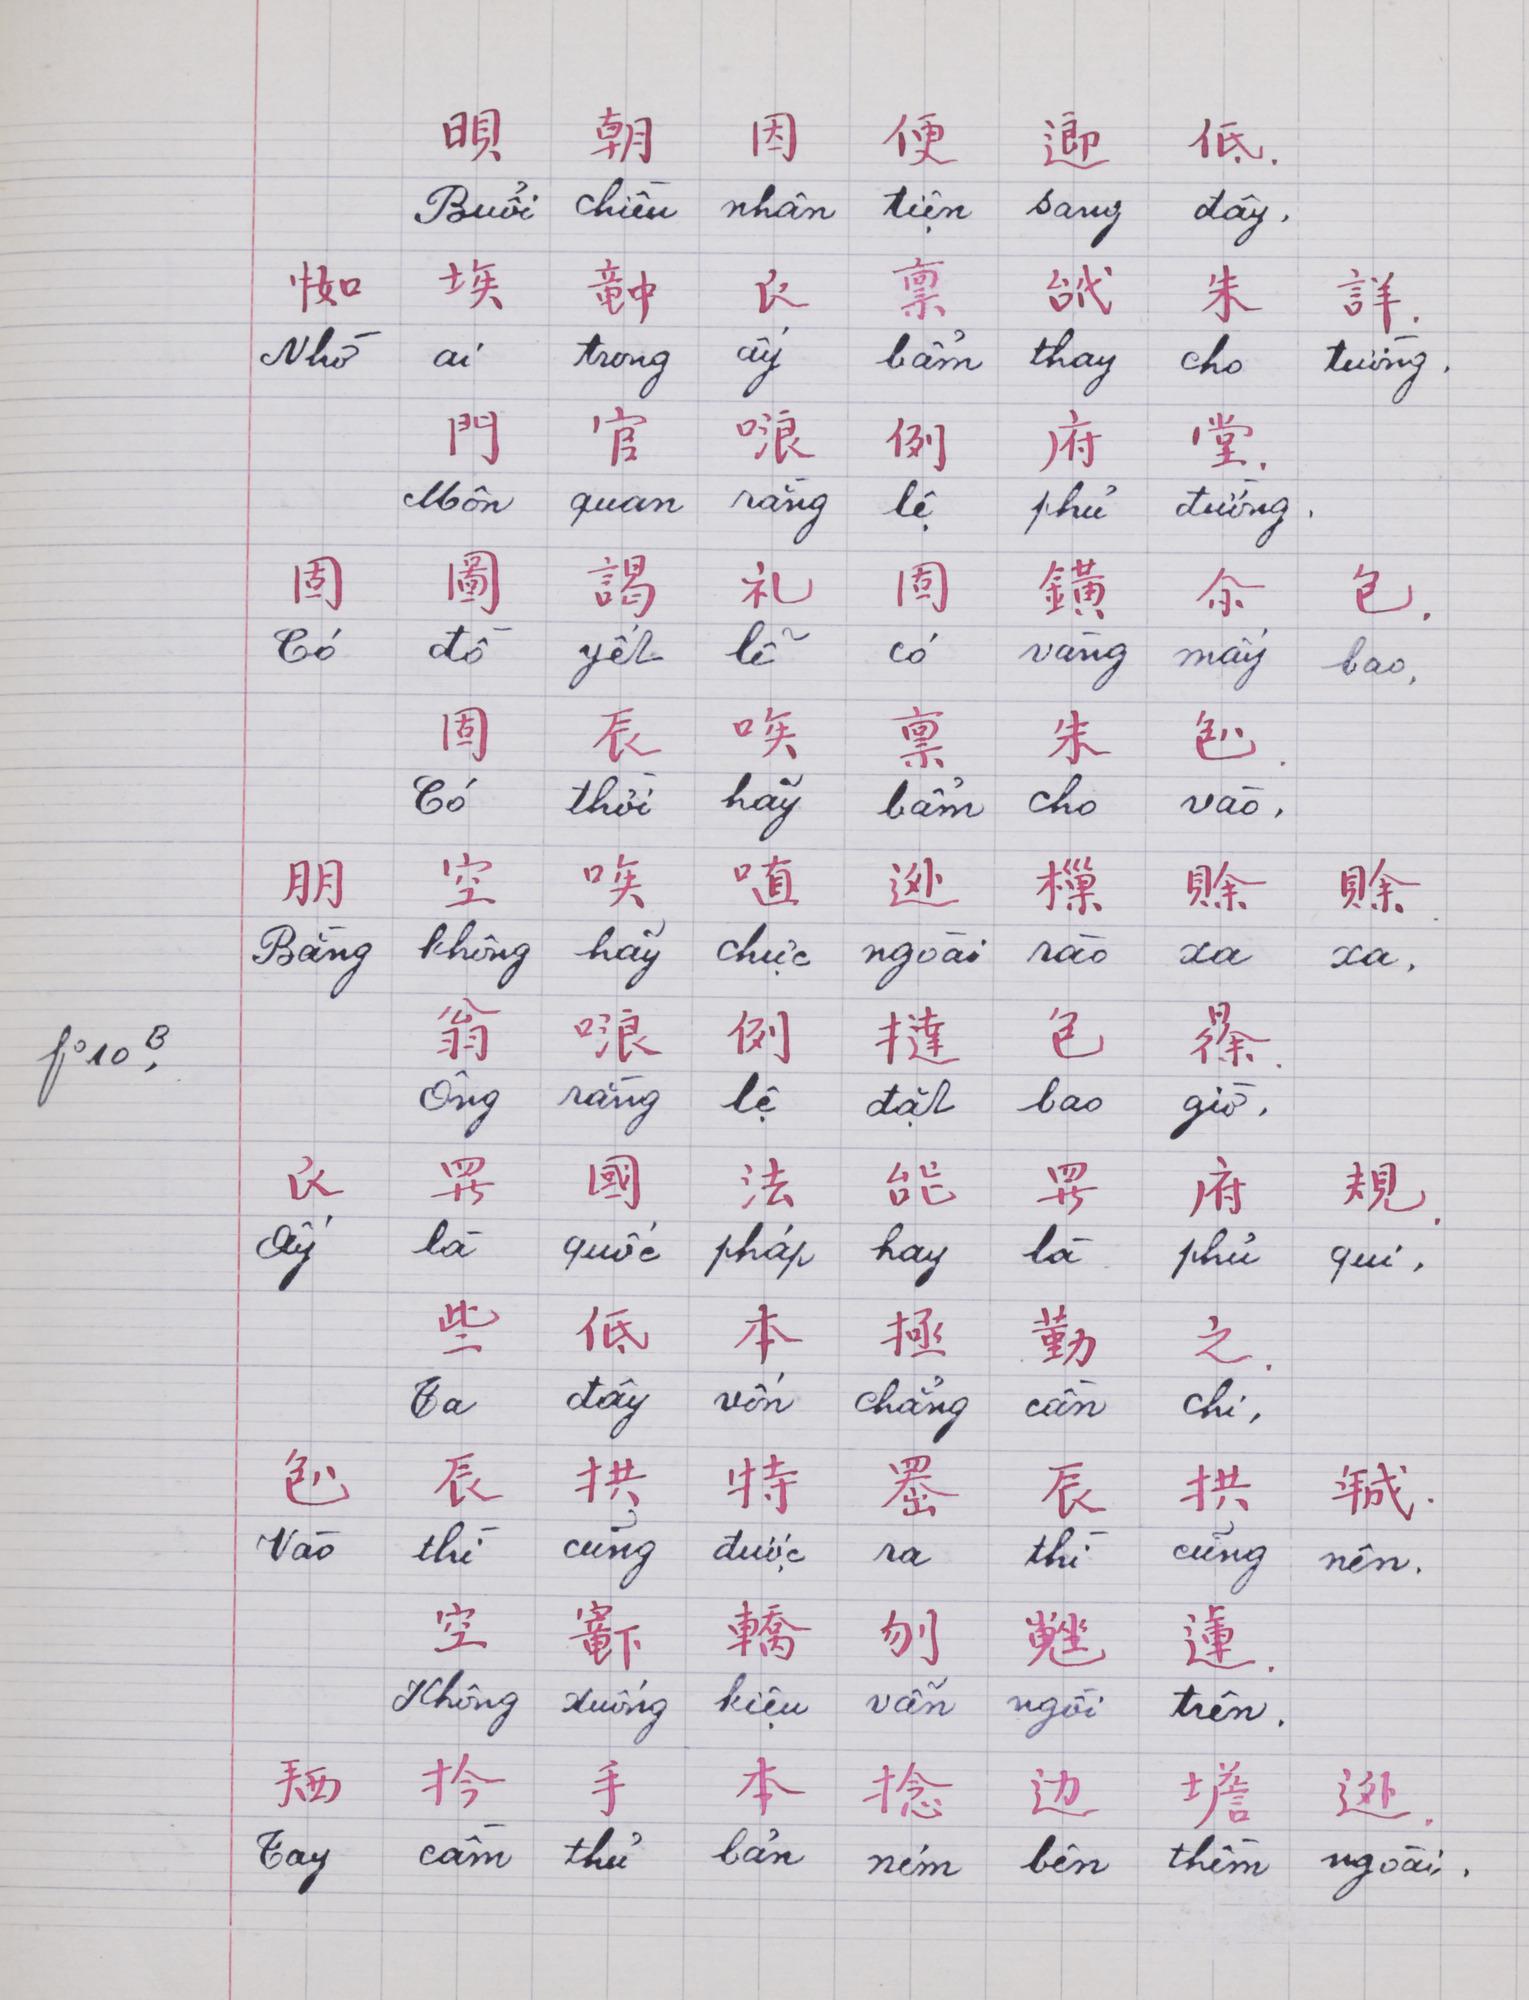 㫲 朝 因 便 𨖅 低.
Buổi chiều nhân tiện sang đây.
㤇 埃 𥪝 𧘇 禀 𠊝 朱 詳.
Nhờ ai trong ấy bẩm thay cho tường.
門 官 哴 例 府 堂.
Môn quan rằng lệ phủ đường.
固 圖 謁 礼 固 鐄 余 包.
Có đồ yết lễ có vàng mấy bao,
固 辰 唉 禀 朱 𠓨.
Có thời hãy bẩm cho vào,
朋 空 唉 㗂 外 樔 賒 賒.
Bằng không hãy chực ngoài rào xa xa,
翁 哴 例 撻 包 𣇞.
f° 10 B.
Ông rằng lệ đặt bao giờ,
𧘇 𱺵 國 法 能 𱺵 府 規.
Ấy là quốc pháp hay là phủ qui,
些 低 本 拯 勤 之.
Ta đây vốn chẳng cần chi,
𠓨 辰 拱 特 𦋦 辰 拱 𢧚.
Vào thì cũng được ra thì cũng nên.
空 𥨪 轎 刎 𡎥 蓮.
Không xuống kiệu vẫn ngồi trên.
𢬣 扲 手 本 捻 边 𡍞 外.
Tay cầm thủ bản ném bên thềm ngoài.